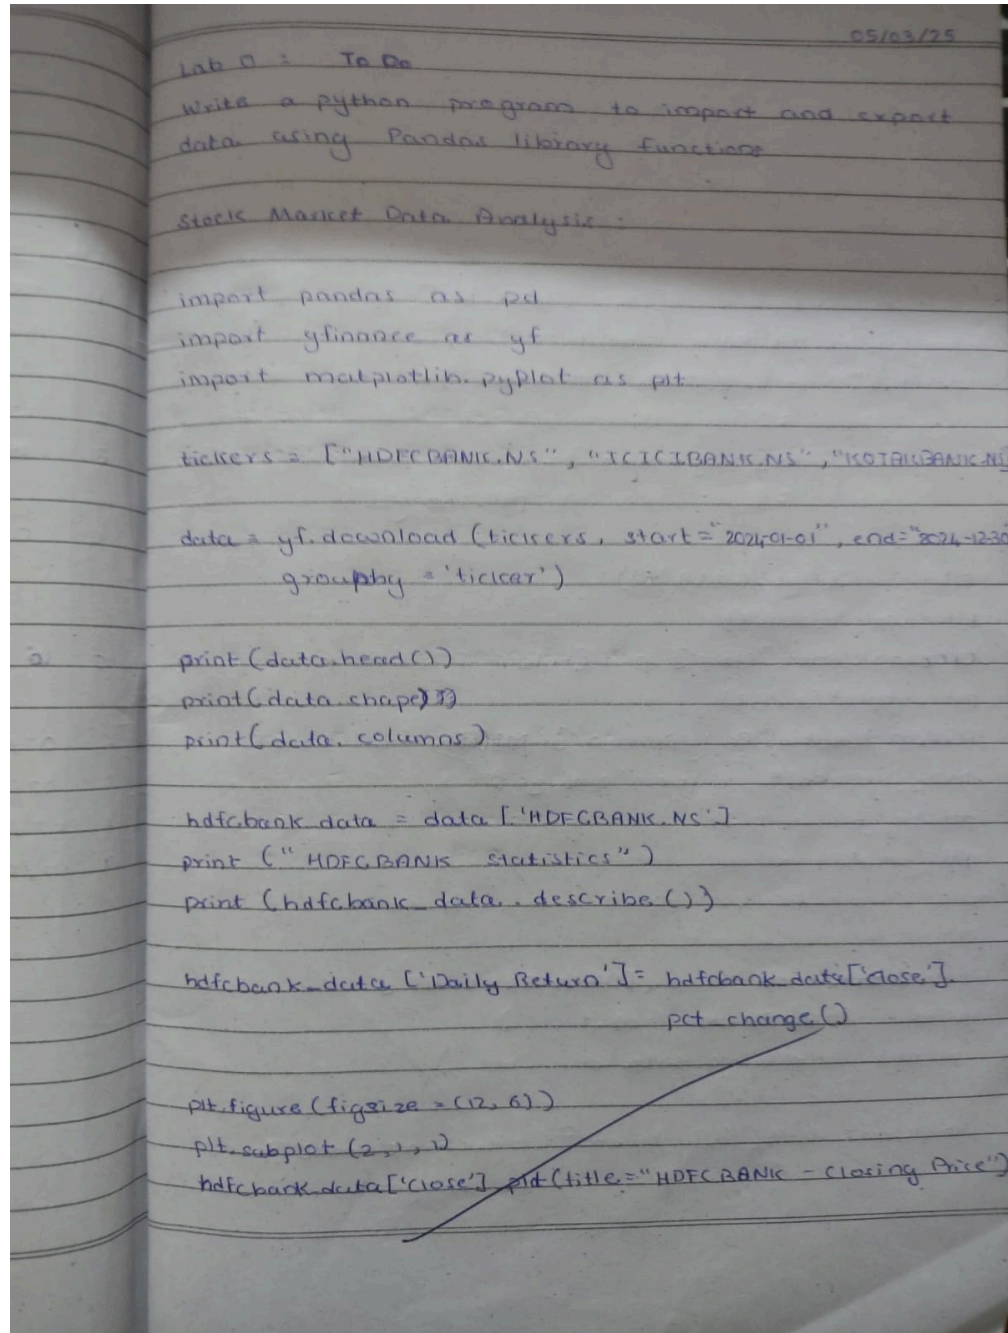 05/03/25
Lab 0 : To Do
Write a python program to import and export
data using Pandas library functions
Stock Market Data Analysis :
import pandas as pd
import yfinance as yf
import matplotlib.pyplot as plt
tickers = ["HDFCBANK.NS", "ICICIBANK.NS", "KOTAKBANK.NS
data = yf.download (tickers, start="2024-01-01", end="2024-12-30
groupby = 'ticker')
print (data.head())
print(data.shape))
print(data.columns)
hdfcbank_data = data ['HDFCBANK.NS']
print ("HDFCBANK statistics")
print (hdfcbank_data..describe())
hdfcbank_data ['Daily Return'] = hdfcbank_data['close'].
pct_change()
plt.figure(figsize = (12, 6))
plt.subplot (2, 1, 1)
hdfcbank_data['close'].plot(title="HDFCBANK - Closing Price")